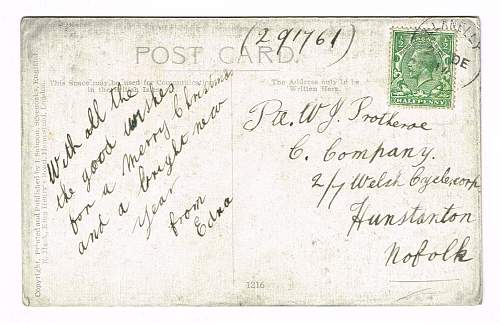 (291761)
POST CARD.
This Space may be used for Communications
in the British Isles
The Address only to be
Written Here.
HALFPENNY
DE
With all the
the good wishes
for a merry Christmas
and a bright new
Year
from
Edna
Pte. W. J. Protheroe
C. Company.
2/7 Welch Cycle corp
Hunstanton
Nofolk
Copyright, Printed and Published by J. Salmon, Sevenoaks, England
1216